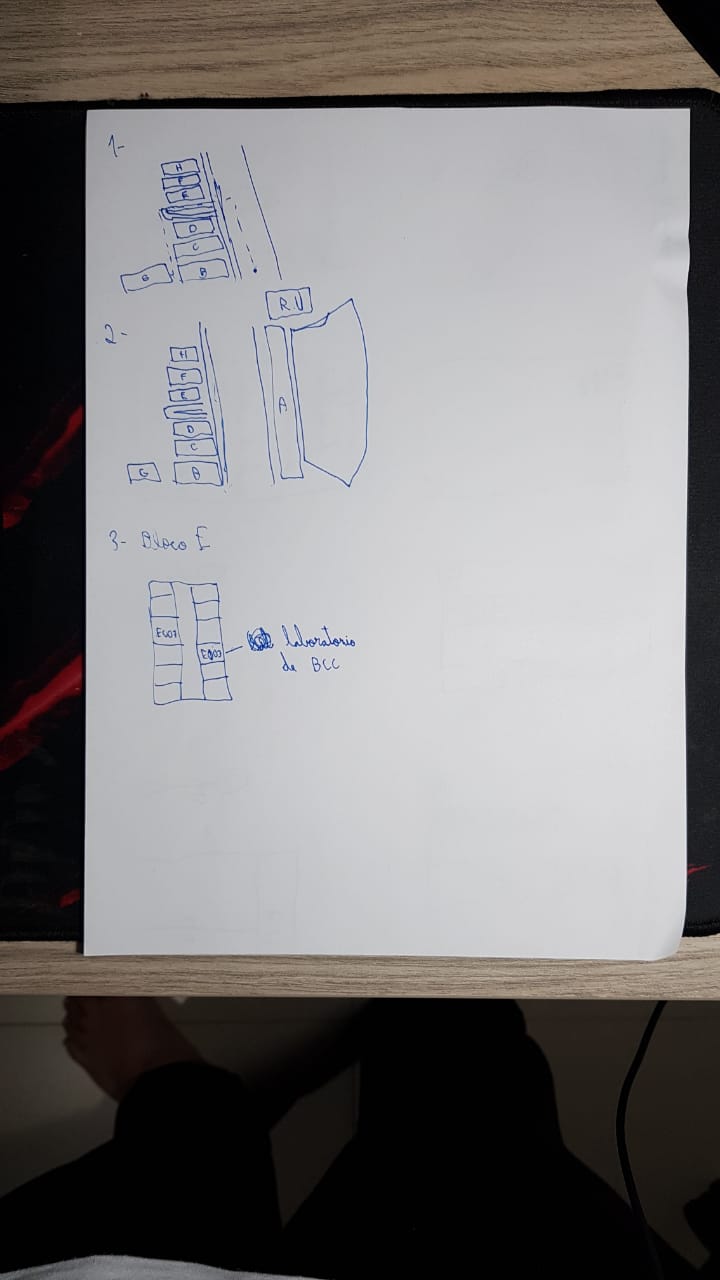 1-
H
F
E
D
C
B
G
RU
2-
H
F
E
D
C
B
G
A
3- Bloco E
E007
E003
laboratorio
de BCC